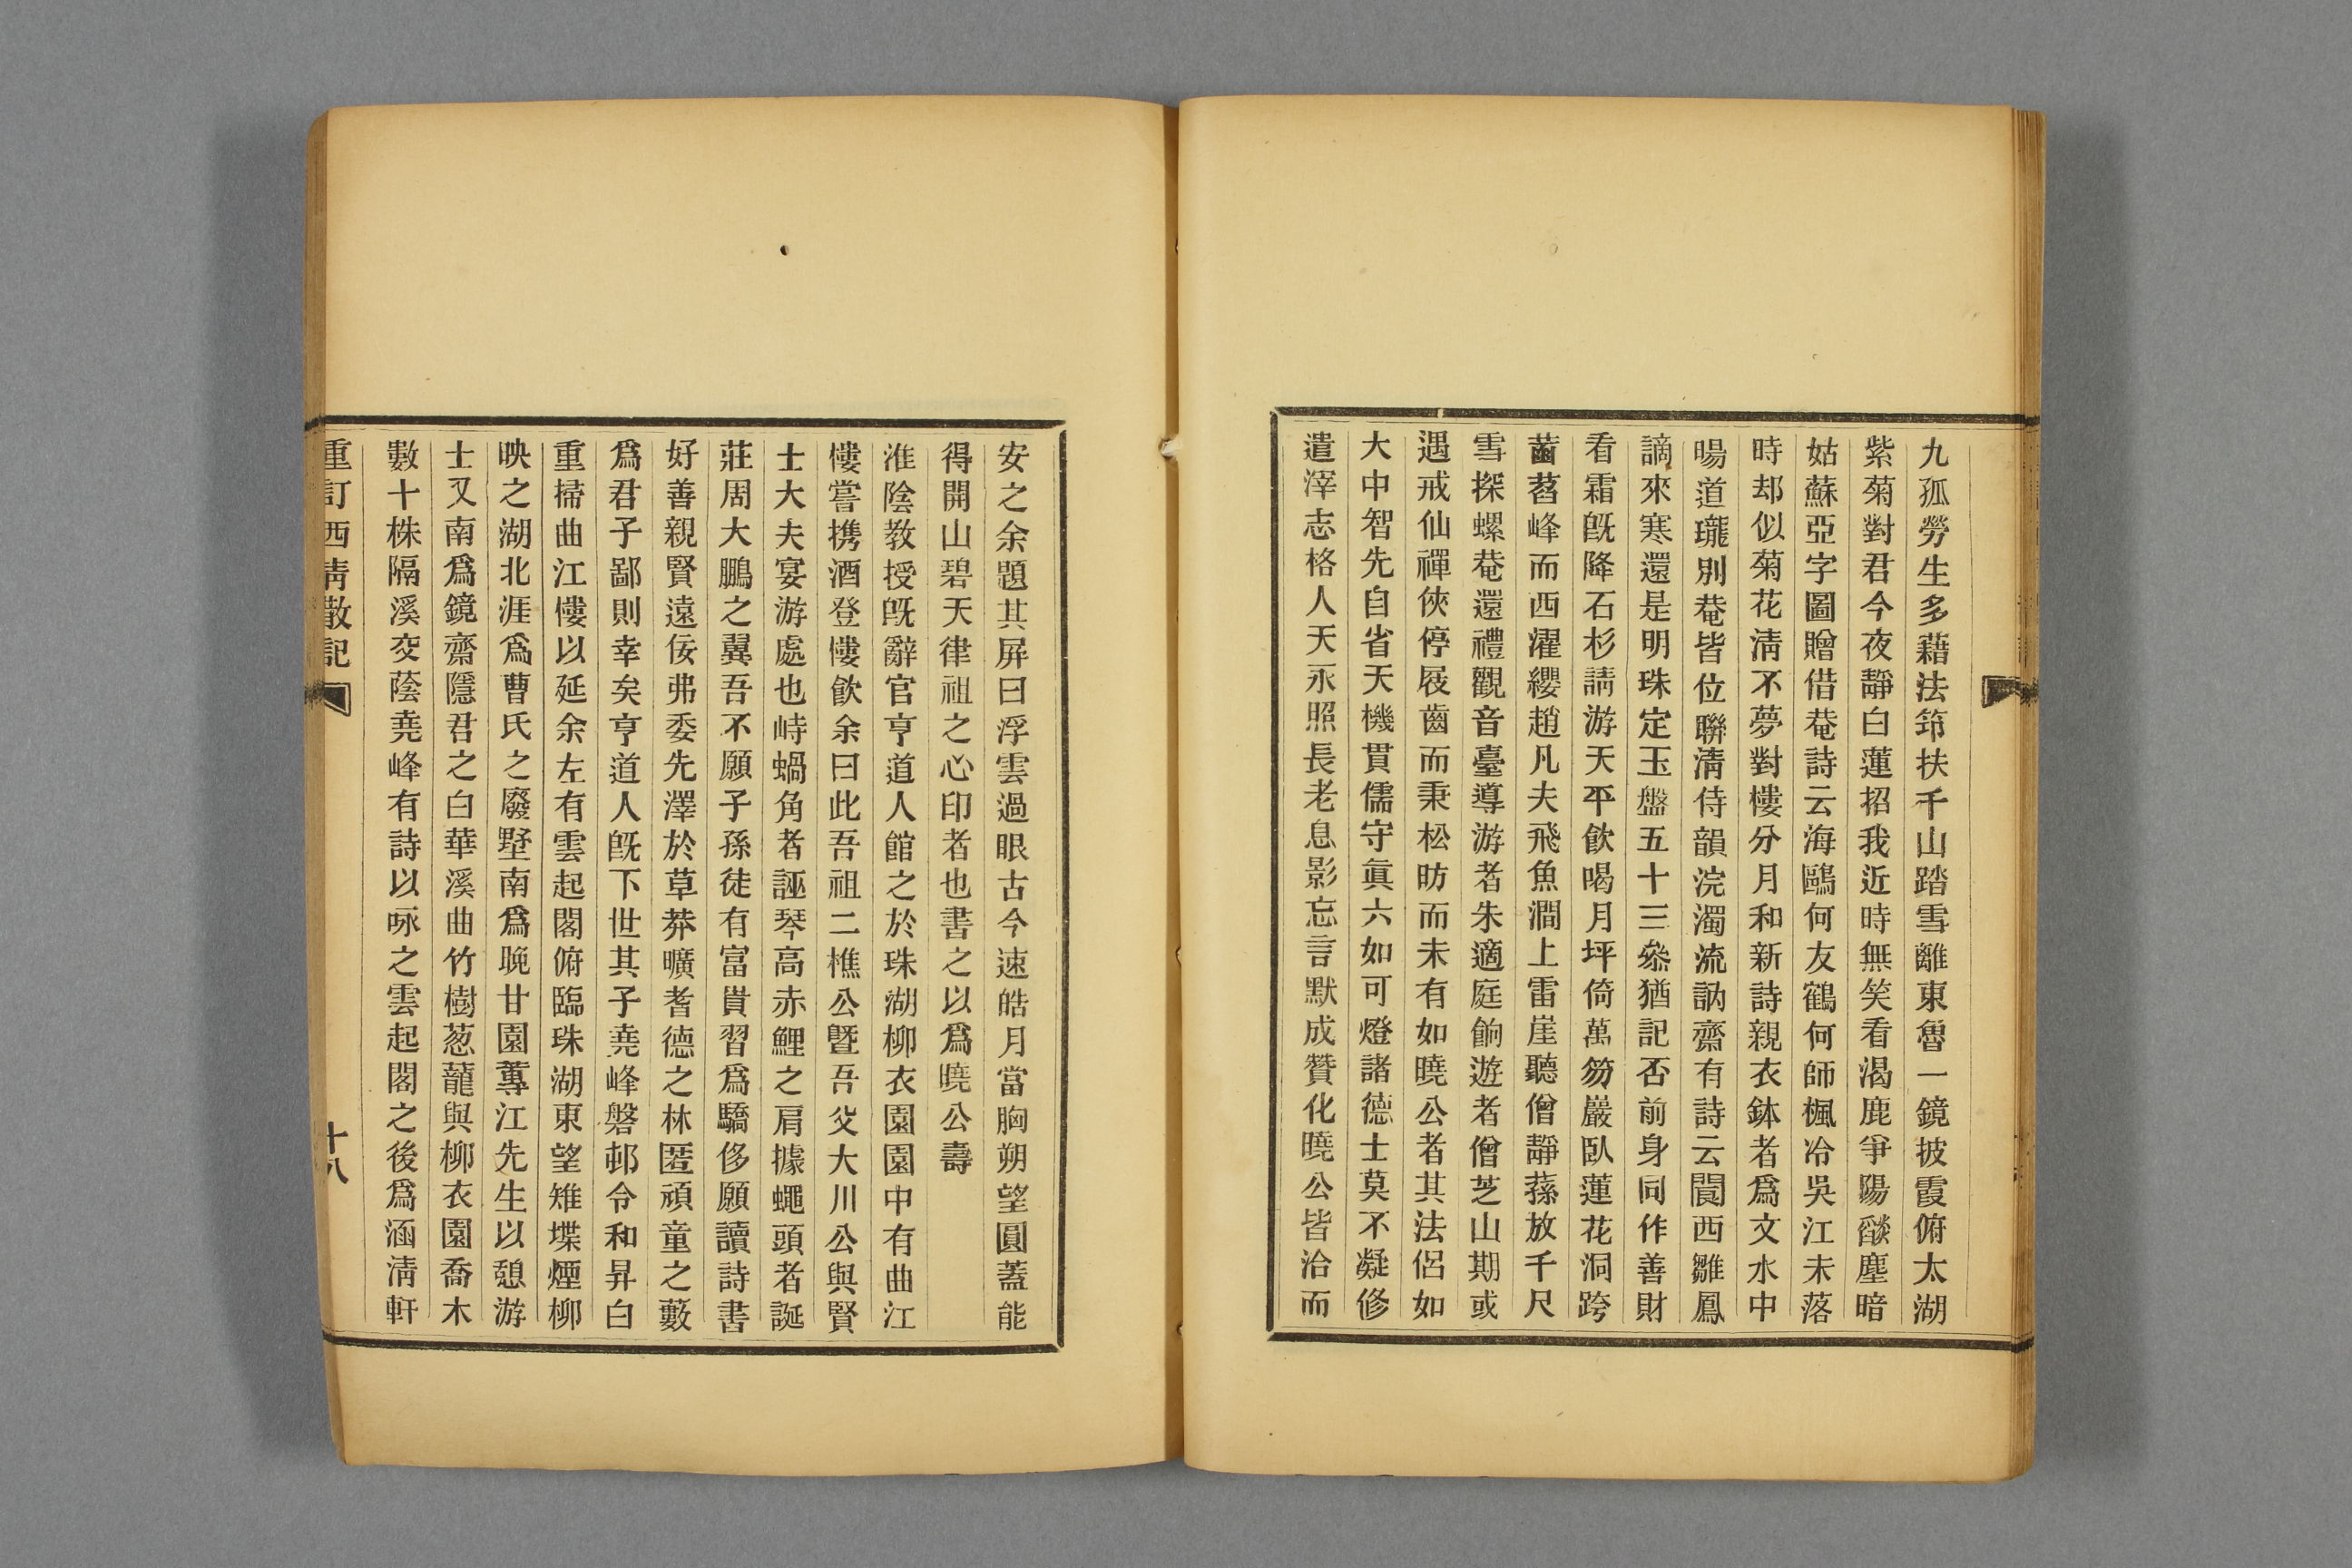 九孤勞生多藉法笻扶千山踏雪離東魯一鏡披霞俯太湖
紫菊對君今夜靜白蓮招我近時無笑看渴鹿爭陽燄塵暗
姑蘇亞字圖贈借菴詩云海鷗何友鶴何師楓冷吳江未落
時却似菊花淸不夢對樓分月和新詩親衣鉢者爲文水中
暘道瓏別菴皆位聯淸侍韻浣濁流訥齋有詩云閬西雛鳳
謫來寒還是明珠定玉盤五十三叅猶記否前身同作善財
看霜旣降石杉請游天平飮喝月坪倚萬笏巖臥蓮花洞跨
菡萏峰而西濯纓趙凡夫飛魚澗上雷崖聽僧靜蓀放千尺
雪探螺菴還禮觀音臺導游者朱適庭餉遊者僧芝山期或
遇戒仙禪俠停屐齒而秉松昉而未有如曉公者其法侶如
大中智先自省天機貫儒守眞六如可燈諸德士莫不凝修
遣滓志格人天永照長老息影忘言默成贊化曉公皆洽而
安之余題其屏曰浮雲過眼古今速皓月當胸朔望圓蓋能
得開山碧天律祖之心印者也書之以爲曉公壽
淮陰教授旣辭官亨道人館之於珠湖柳衣園園中有曲江
樓嘗携酒登樓飮余曰此吾祖二樵公曁吾父大川公與賢
士大夫宴游處也峙蝸角者誣琴高赤鯉之肩據蠅頭者誕
莊周大鵬之翼吾不願子孫徒有富貴習爲驕侈願讀詩書
好善親賢遠佞弗委先澤於草莽曠耆德之林匿頑童之藪
爲君子鄙則幸矣亨道人旣下世其子堯峰磐邨令和昇白
重掃曲江樓以延余左有雲起閣俯臨珠湖東望雉堞煙柳
映之湖北涯爲曹氏之廢墅南爲晚甘園蓴江先生以憩游
士又南爲鏡齋隱君之白華溪曲竹樹葱蘢與柳衣園喬木
數十株隔溪交蔭堯峰有詩以咏之雲起閣之後爲涵淸軒
重訂西淸散記
十八